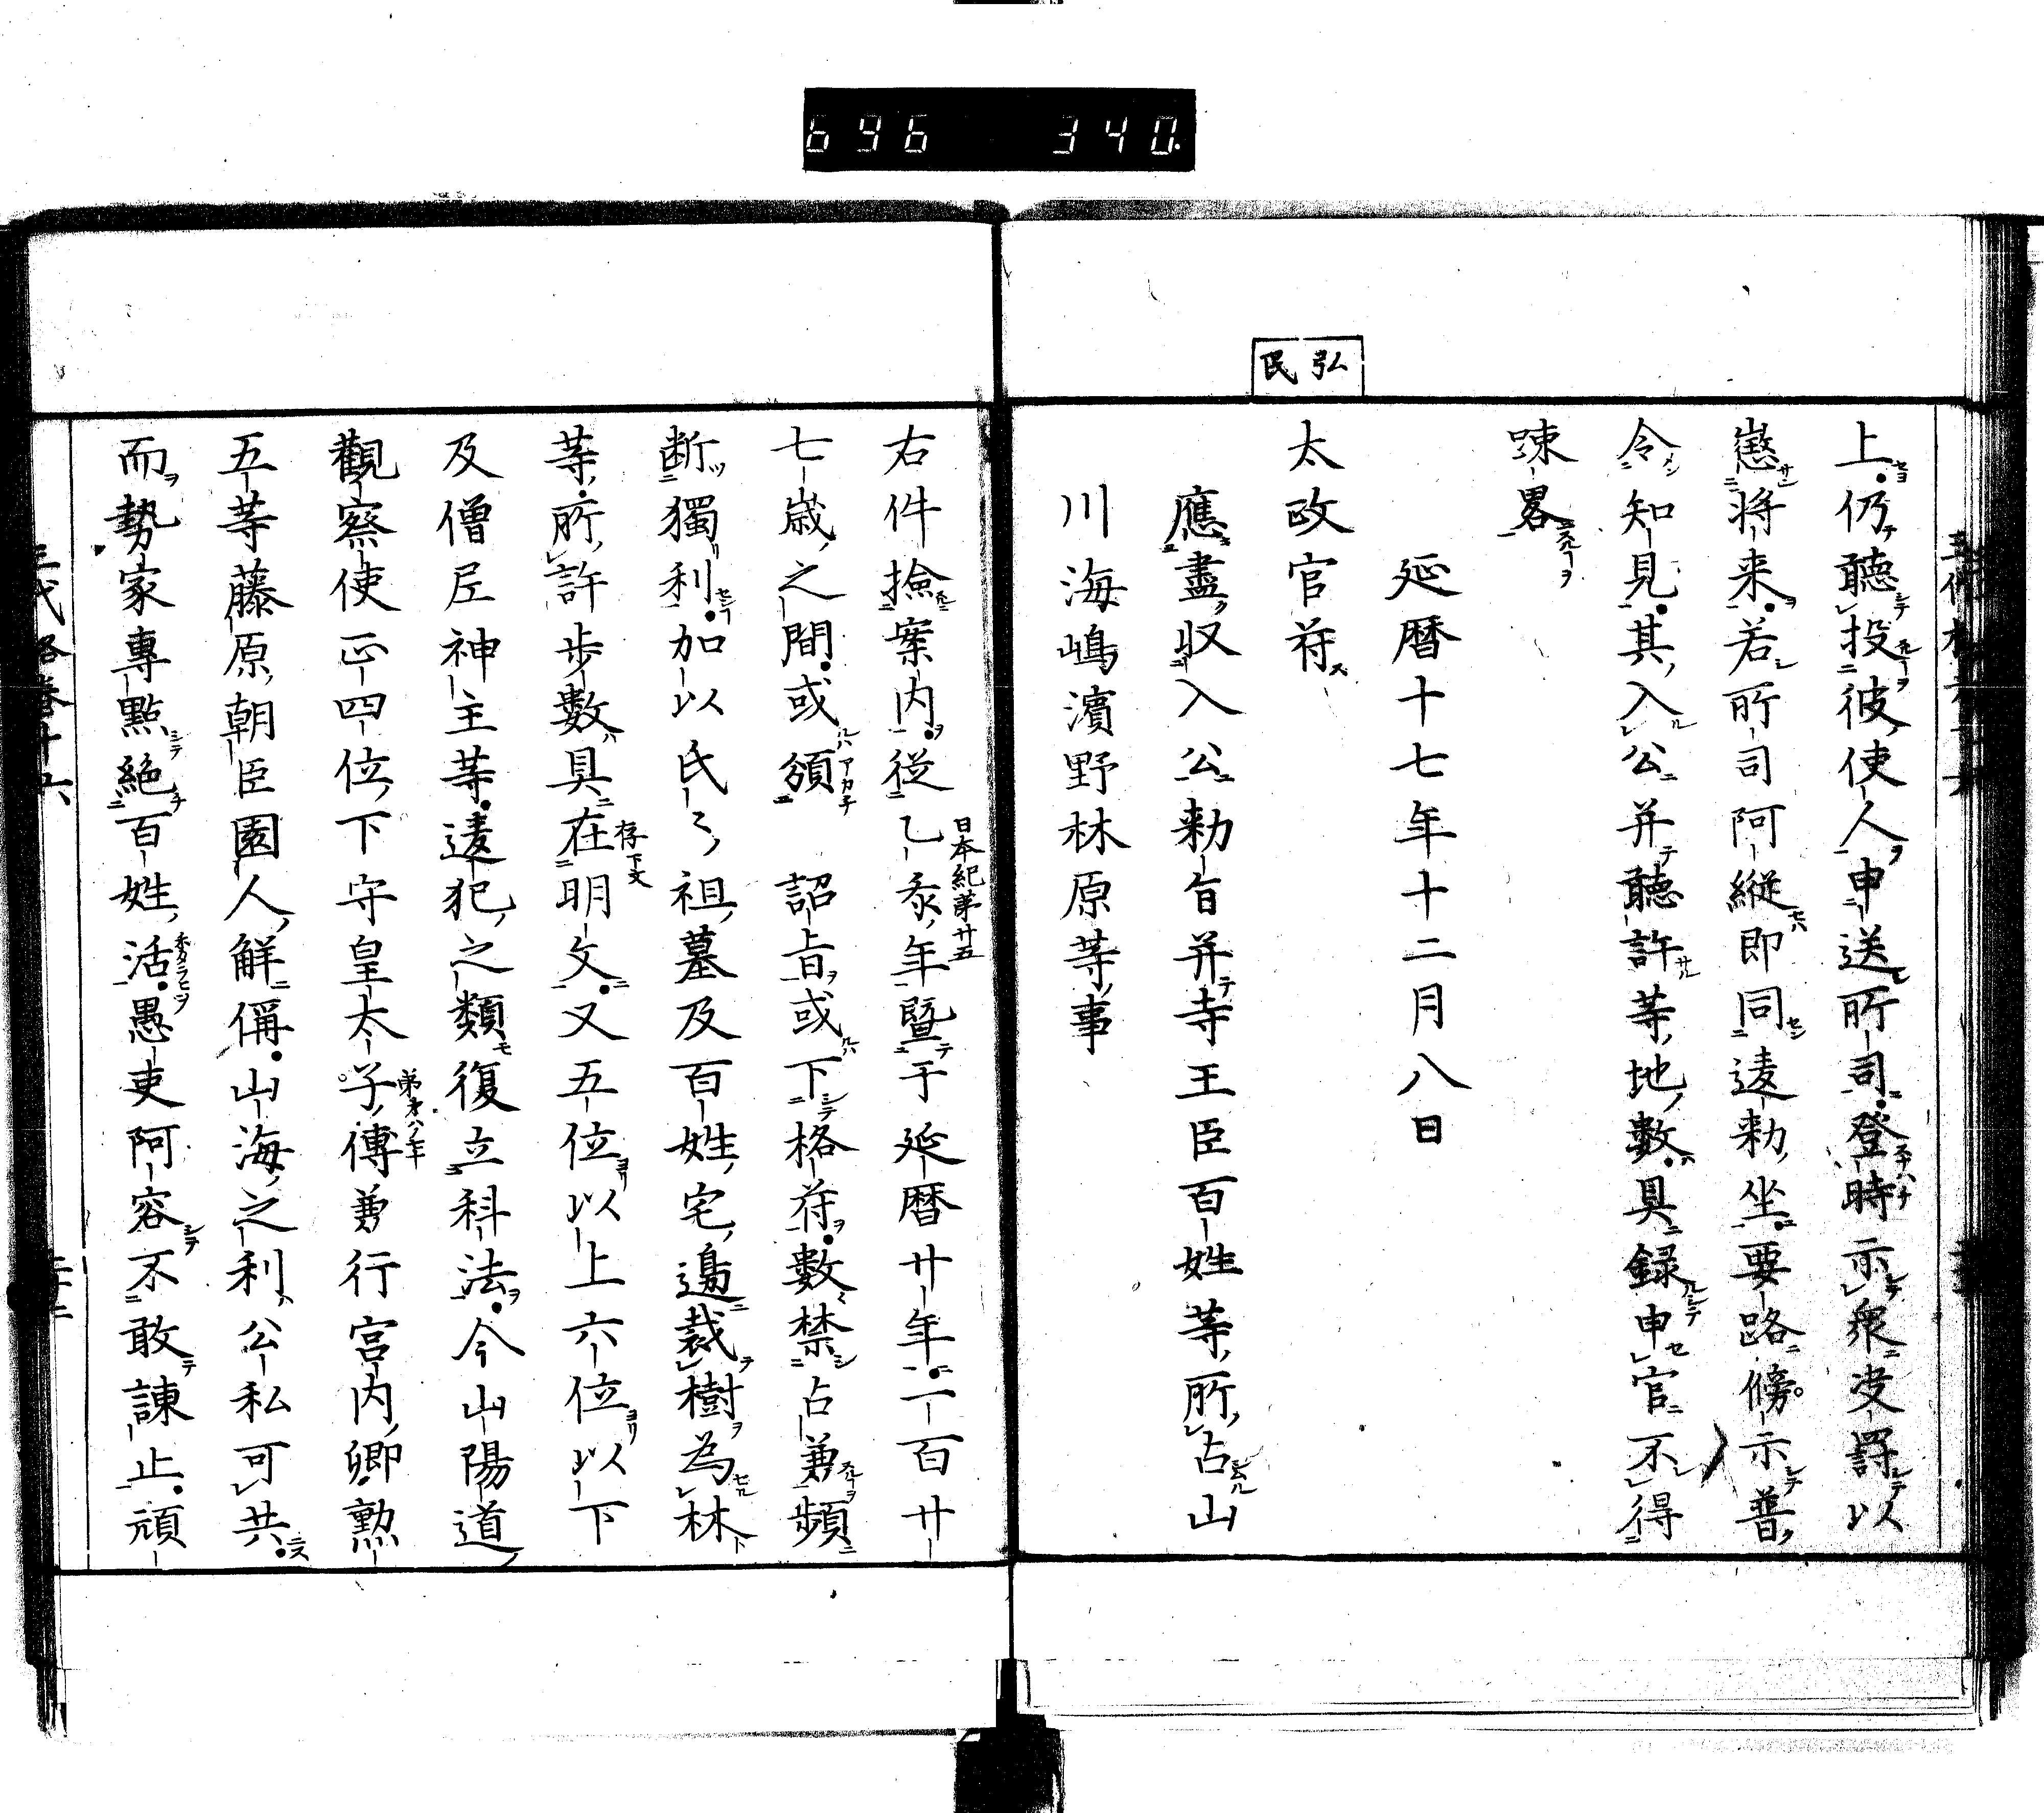 696 340
弘民
上仍聴投彼使人申送所司登時示衆决罸以
懲将来若所司阿縦即同違勅坐要路傍示普
令知見其入公并聴許等地數具録申官不得
踈畧
延暦十七年十二月八日
太政官符
應盡収入公勅旨并寺王臣百姓等所占山
川海嶋濱野林原等事
右件撿案内従乙亥年曁于延暦廿年一百廿
日本紀第廿五
七歳之間或頒詔旨或下格符數禁占兼頻
断獨利加以氏々祖墓及百姓宅邊裁樹為林
等所許歩數具在明文又五位以上六位以下
存下文
及僧尼神主等違犯之類復立科法今山陽道
觀察使正四位下守皇太子傅兼行宮内卿勲
五等藤原朝臣園人解偁山海之利公私可共
而勢家專點絶百姓活愚吏阿容不敢諌止頑
三代格巻十六